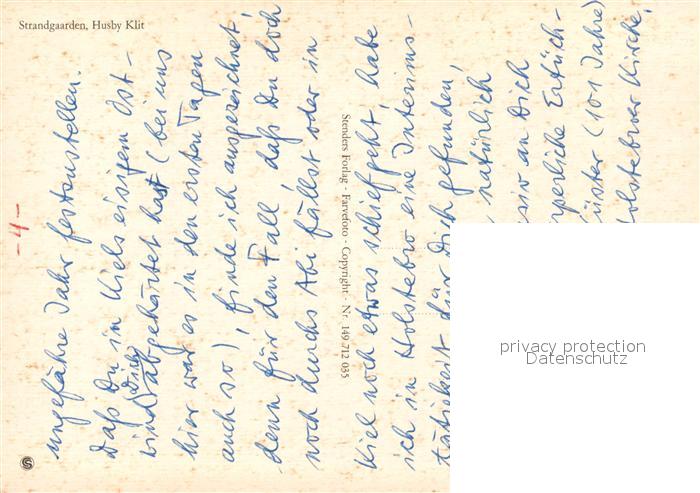 Strandgaarden, Husby Klit
- 4 -
ungefähre Jahr festzustellen.
Daß Du in Kiels eisigem Ost-
wind Dich abgehärtet hast (bei uns
hier war es in den ersten Tagen
auch so), finde ich ausgezeichnet,
denn für den Fall, daß Du doch
noch durchs Abi fällst oder in
Stenders Forlag - Farvefoto - Copyright - Nr. 149 712 035
Kiel noch etwas schiefgeht, habe
ich in Holstebro eine Interims-
tätigkeit für Dich gefunden,
natürlich
an Dich
perliche Ertüch-
(101 Jahre)
Holstebroer Kirche,
privacy protection
Datenschutz